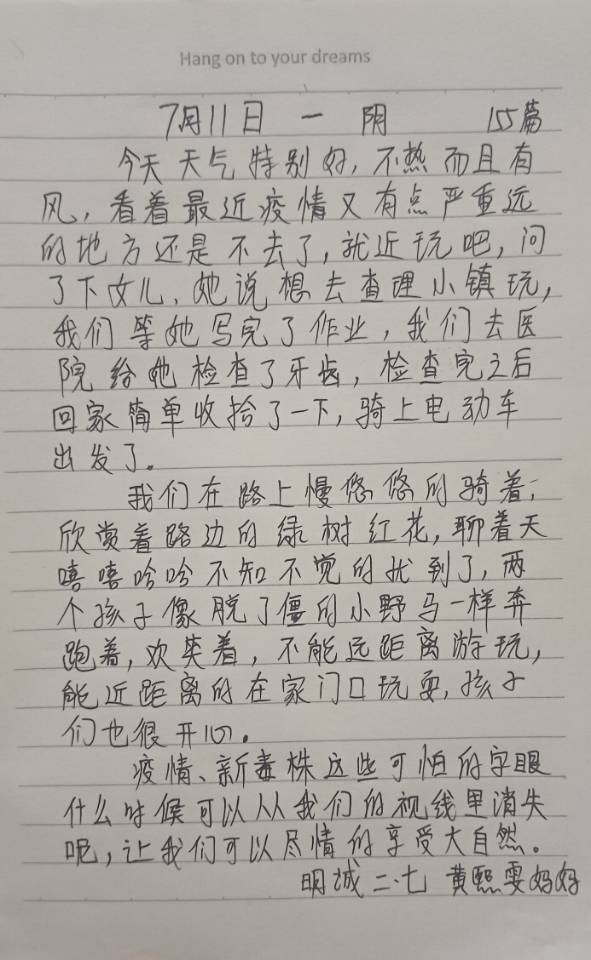 Hang on to your dreams
7月11日 一 阴 155篇
今天天气特别好，不热而且有
风，看着最近疫情又有点严重远
的地方还是不去了，就近玩吧，问
了下女儿、她说想去查理小镇玩，
我们等她写完了作业，我们去医
院给她检查了牙齿，检查完之后
回家简单收拾了一下，骑上电动车
出发了。
我们在路上慢悠悠的骑着；
欣赏着路边的绿树红花，聊着天
嘻嘻哈哈不知不觉的就到了，两
个孩子像脱了僵的小野马一样奔
跑着，欢笑着，不能远距离游玩，
能近距离的在家门口玩耍，孩子
们也很开心。
疫情、新毒株这些可怕的字眼
什么时候可以从我们的视线里消失
呢，让我们可以尽情的享受大自然。
明城二·七 黄熙雯妈妈